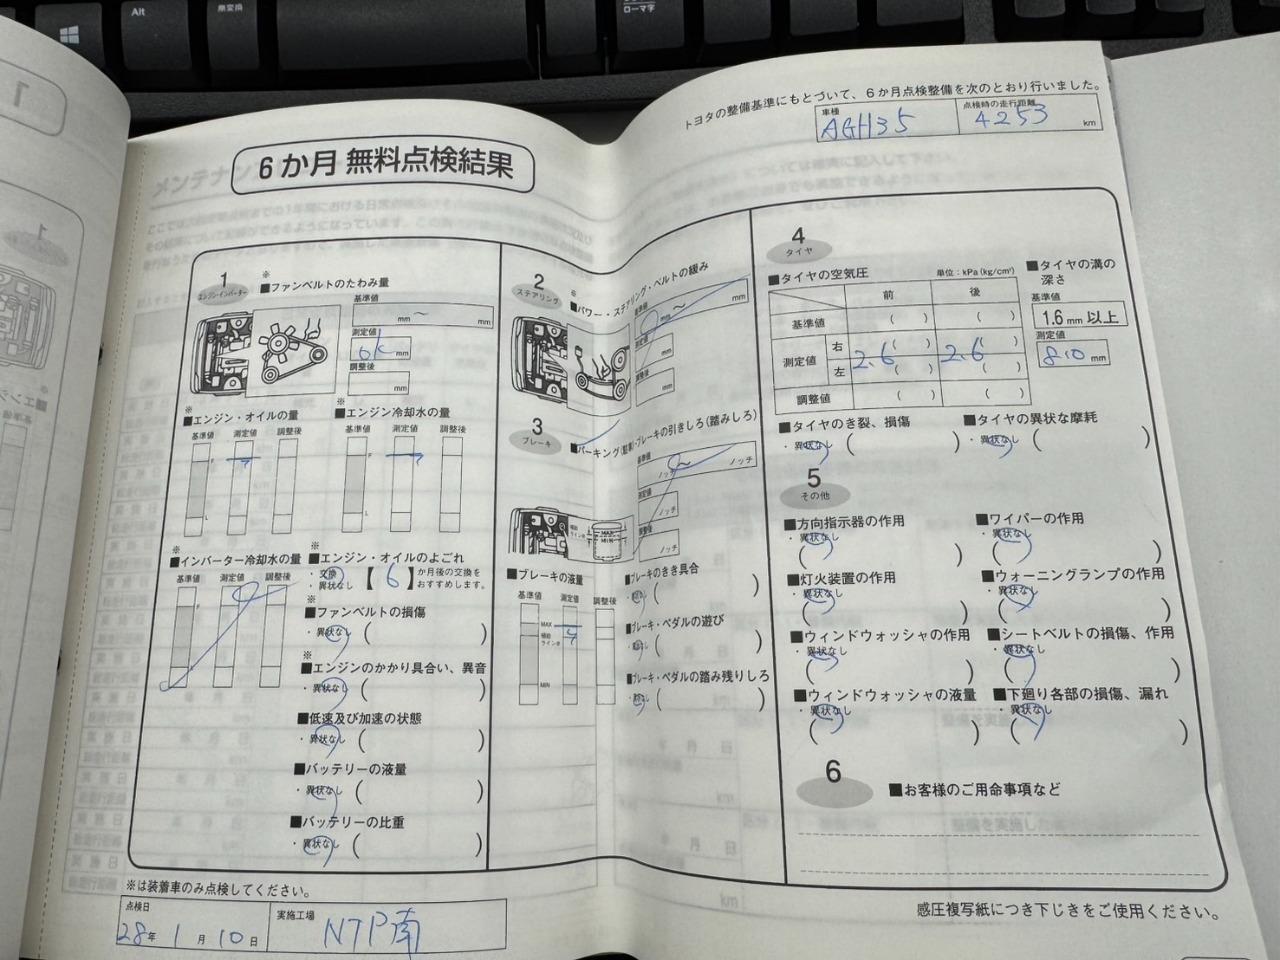 Alt
無変換
ローマ字
トヨタの整備基準にもとづいて、6か月点検整備を次のとおり行いました。
車種
AGH35
点検時の走行距離
4253 km
6か月 無料点検結果
1
エンジン・インバーター
※
■ファンベルトのたわみ量
基準値
mm ~ mm
測定値
ok mm
調整後
mm
※
■エンジン・オイルの量
基準値 測定値 調整後
F
L
■エンジン冷却水の量
基準値 測定値 調整後
F
L
※
■インバーター冷却水の量
基準値 測定値 調整後
F
L
※
■エンジン・オイルのよごれ
・交換
・異状なし
【 6 】
か月後の交換を
おすすめします。
※
■ファンベルトの損傷
・異状なし ( )
※
■エンジンのかかり具合い、異音
・異状なし ( )
■低速及び加速の状態
・異状なし ( )
■バッテリーの液量
・異状なし ( )
■バッテリーの比重
・異状なし ( )
2
ステアリング
※
■パワー・ステアリング・ベルトの緩み
基準値
mm ~ mm
測定値
mm
調整後
mm
3
ブレーキ
■パーキング(駐車)・ブレーキの引きしろ(踏みしろ)
基準値
ノッチ ~ ノッチ
測定値
ノッチ
調整後
ノッチ
MAX
MIN
■ブレーキの液量
基準値 測定値 調整後
MAX
MIN
■ブレーキのきき具合
( )
■ブレーキ・ペダルの遊び
( )
■ブレーキ・ペダルの踏み残りしろ
( )
4
タイヤ
■タイヤの空気圧
単位：kPa(kg/cm²)
前 後
基準値 ( ) ( )
測定値
右 ( ) ( )
左 ( ) ( )
2.6 2.6
調整値 ( ) ( )
■タイヤの溝の
深さ
基準値
1.6 mm 以上
測定値
8.0 mm
■タイヤのき裂、損傷
・異状なし ( )
■タイヤの異状な摩耗
・異状なし ( )
5
その他
■方向指示器の作用
・異状なし
( )
■ワイパーの作用
・異状なし
( )
■灯火装置の作用
・異状なし
( )
■ウォーニングランプの作用
・異状なし
( )
■ウィンドウォッシャの作用
・異状なし
( )
■シートベルトの損傷、作用
・異状なし
( )
■ウィンドウォッシャの液量
・異状なし
( )
■下廻り各部の損傷、漏れ
・異状なし
( )
6
■お客様のご用命事項など
※は装着車のみ点検してください。
点検日
28年 1月 10日
実施工場
NTP南
感圧複写紙につき下じきをご使用ください。